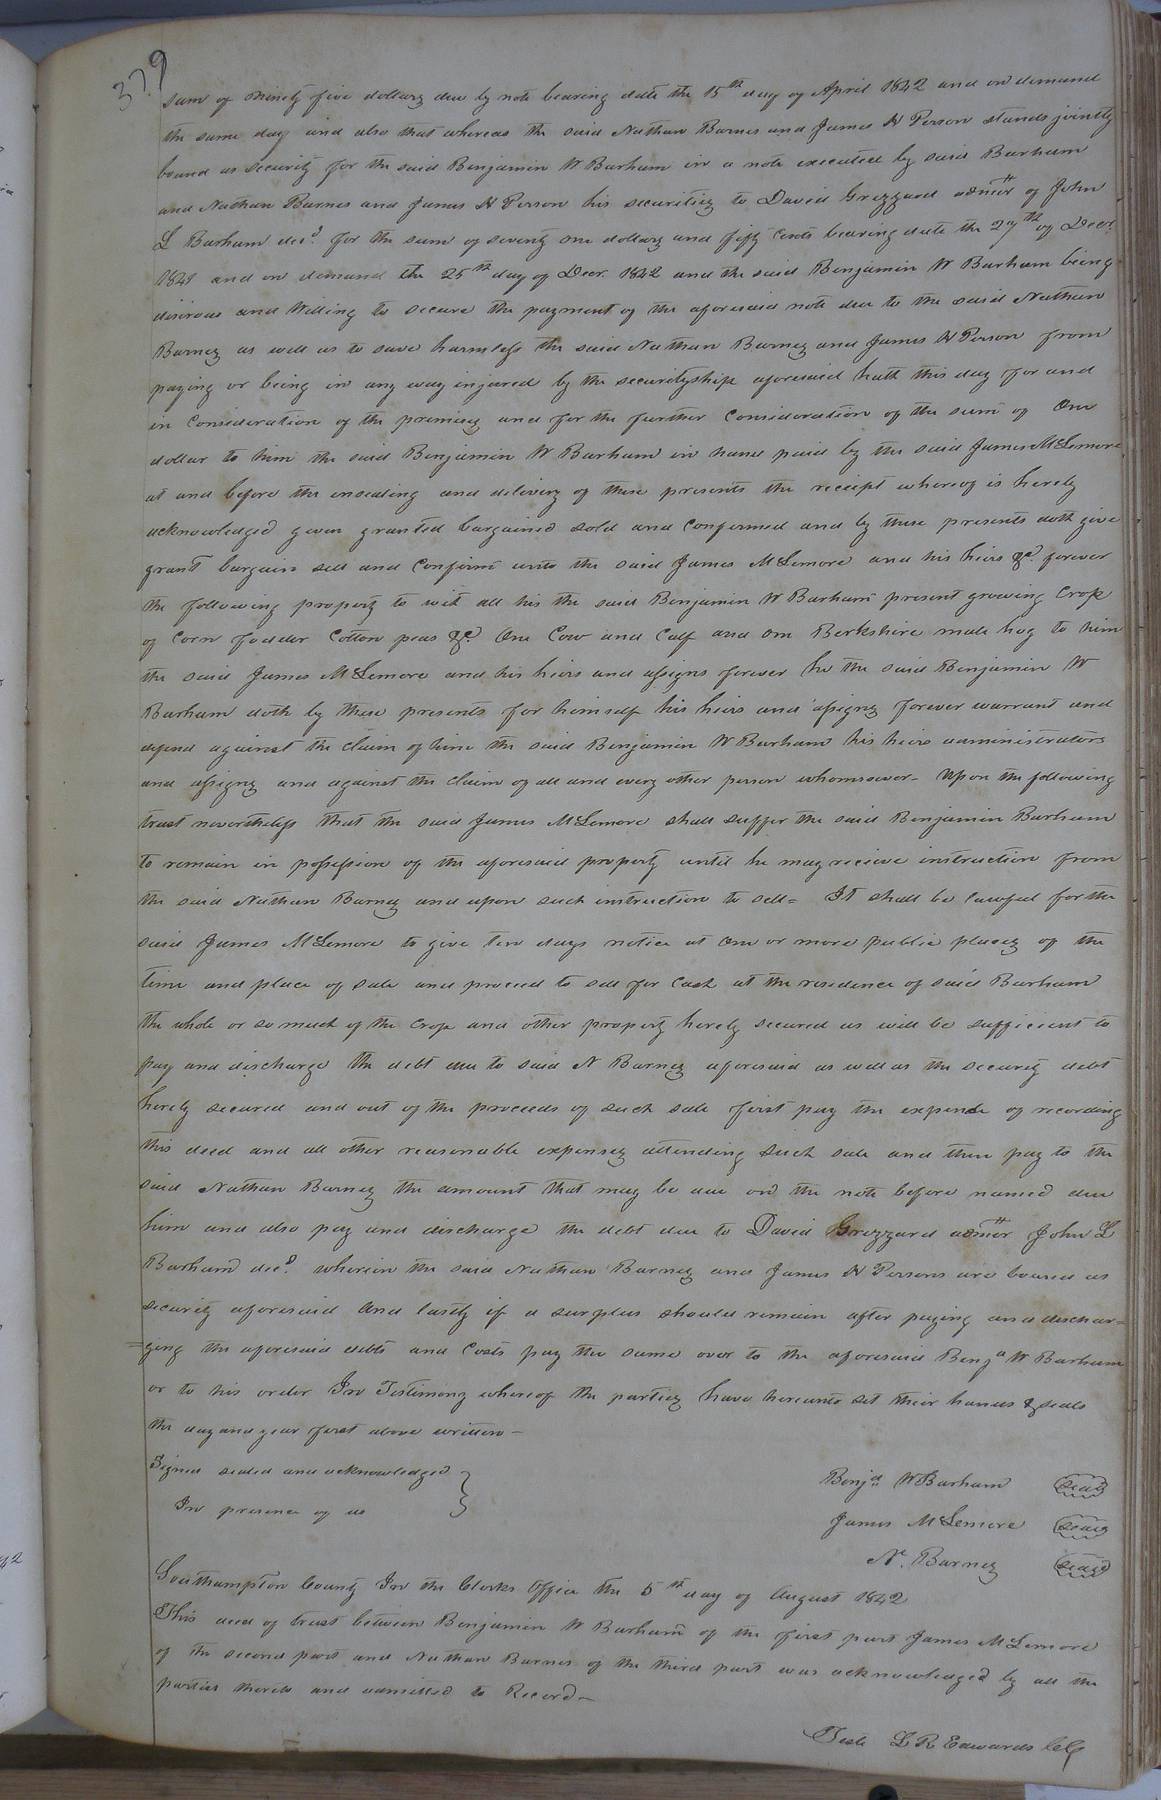 379
sum of ninety five dollars due by note bearing date the 15th day of April 1842 and on demand
the same day and also that whereas the said Nathan Barnes and James H Person stands jointly
bound as security for the said Benjamin W Barham in a note executed by said Barham
and Nathan Barnes and James H Person his securities to David Grizzard admor of John
L Barham decd. for the sum of seventy one dollars and fifty Cents bearing date the 27th of Decr.
1841 and on demand the 25th day of Decr. 1842 and the said Benjamin W Barham being
disirous and Willing to secure the payment of the aforesaid note due to the said Nathan
Barnes as well as to save harmless the said Nathan Barnes and James H Person from
paying or being in any way injured by the securityship aforesaid hath this day for and
in Consideration of the premises and for the further Consideration of the sum of One
dollar to him the said Benjamin W Barham in hand paid by the said James McLemore
at and before the ensealing and delivery of these presents the receipt whereof is hereby
acknowledged given granted bargained sold and Confirmed and by these presents doth give
grant bargain sell and Confirm unto the said James McLemore and his heirs &c. forever
the following property to wit all his the said Benjamin W Barham present growing Crop
of Corn fodder Cotton peas &c. One Cow and Calf and one Berkshire male hog to him
the said James McLemore and his heirs and assigns forever he the said Benjamin W
Barham doth by these presents for himself his heirs and assigns forever warrant and
defend against the Claim of him the said Benjamin W Barham his heirs administrators
and assigns and against the Claim of all and every other person whomsoever - Upon the following
trust nevertheless that the said James McLemore shall suffer the said Benjamin Barham
to remain in possession of the aforesaid property until he may recieve instruction from
the said Nathan Barnes and upon such instruction to sell = It shall be lawful for the
said James McLemore to give ten days notice at one or more public places of the
time and place of sale and proceed to sell for Cash at the residence of said Barham
the whole or so much of the Crop and other property hereby secured as will be sufficient to
pay and discharge the debt due to said N Barnes aforesaid as well as the security debt
hereby secured and out of the proceeds of such sale first pay the expense of recording
this deed and all other reasonable expenses attending such sale and then pay to the
said Nathan Barnes the amount that may be due on the note before named due
him and also pay and discharge the debt due to David Grizzard admor John L
Barham decd. wherein the said Nathan Barnes and James H Persons are bound as
security aforesaid And lastly if a surplus should remain after paying and dischar=
=ging the aforesaid debts and Costs pay the same over to the aforesaid Benja W Barham
or to his order In Testimony whereof the parties have hereunto set their hands & seals
the day and year first above written -
Signed sealed and acknowledged
In presence of us
Benja W Barham seal
James McLemore seal
N. Barnes seal
Southampton County In the Clerks Office the 5th day of August 1842
This deed of trust between Benjamin W Barham of the first part James McLemore
of the second part and Nathan Barnes of the third part was acknowledged by all the
parties thereto and admitted to Record -
Teste L R Edwards CC